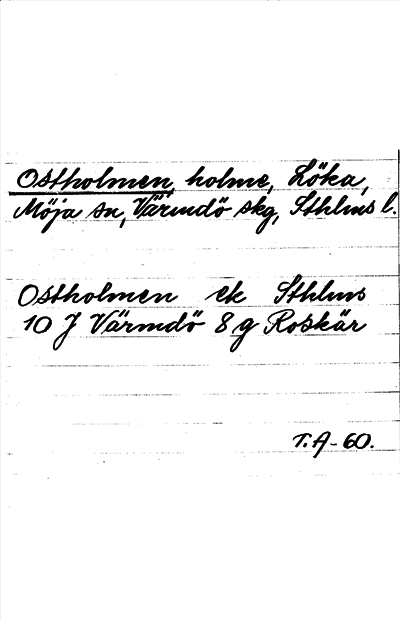 Ostholmen, holme, Löka,
Möja sn, Värmdö skg, Sthlms l.
Ostholmen ek Sthlms
10 J Värmdö 8 g Roskär
T.A-60.